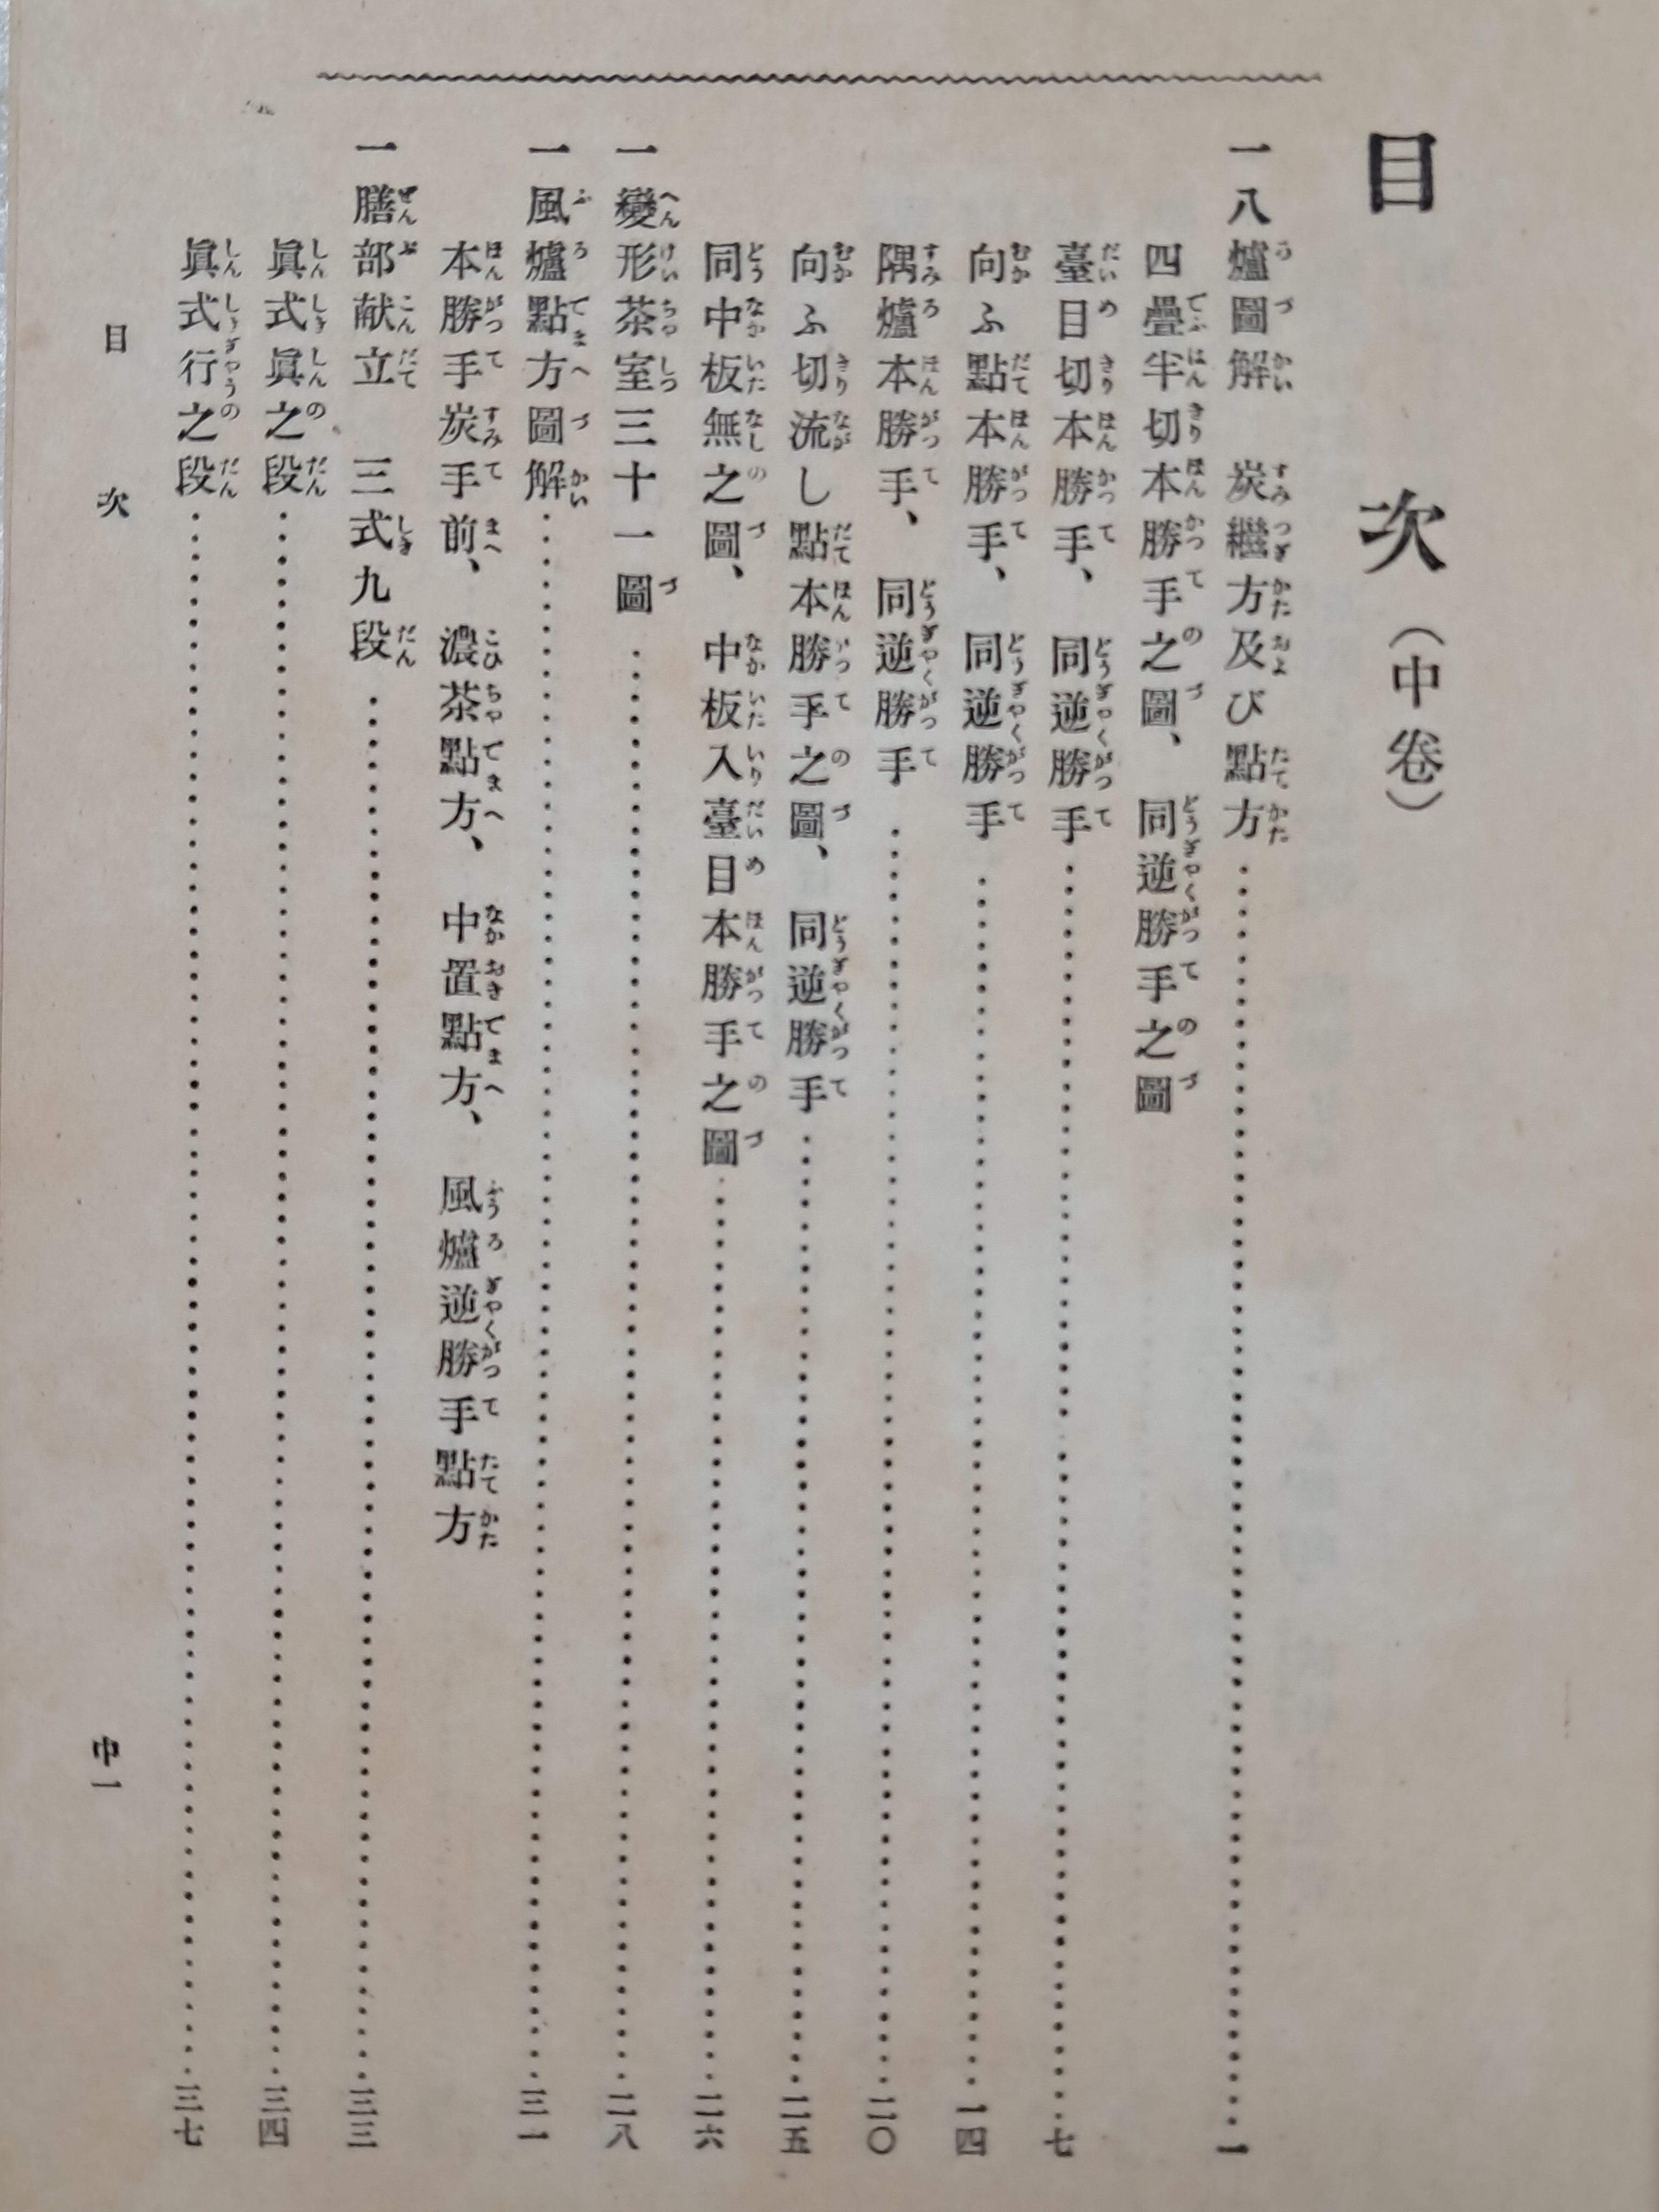 目次（中卷）
一八爐圖解　炭繼方及び點方……一
四疊半切本勝手之圖、同逆勝手之圖
臺目切本勝手、同逆勝手……七
向ふ點本勝手、同逆勝手……一四
隅爐本勝手、同逆勝手……二〇
向ふ切流し點本勝手之圖、同逆勝手……二五
同中板無之圖、中板入臺目本勝手之圖……二六
一變形茶室三十一圖……二八
一風爐點方圖解……三一
本勝手炭手前、濃茶點方、中置點方、風爐逆勝手點方
一膳部献立　三式九段……三三
眞式眞之段……三四
眞式行之段……三七
目次
中一